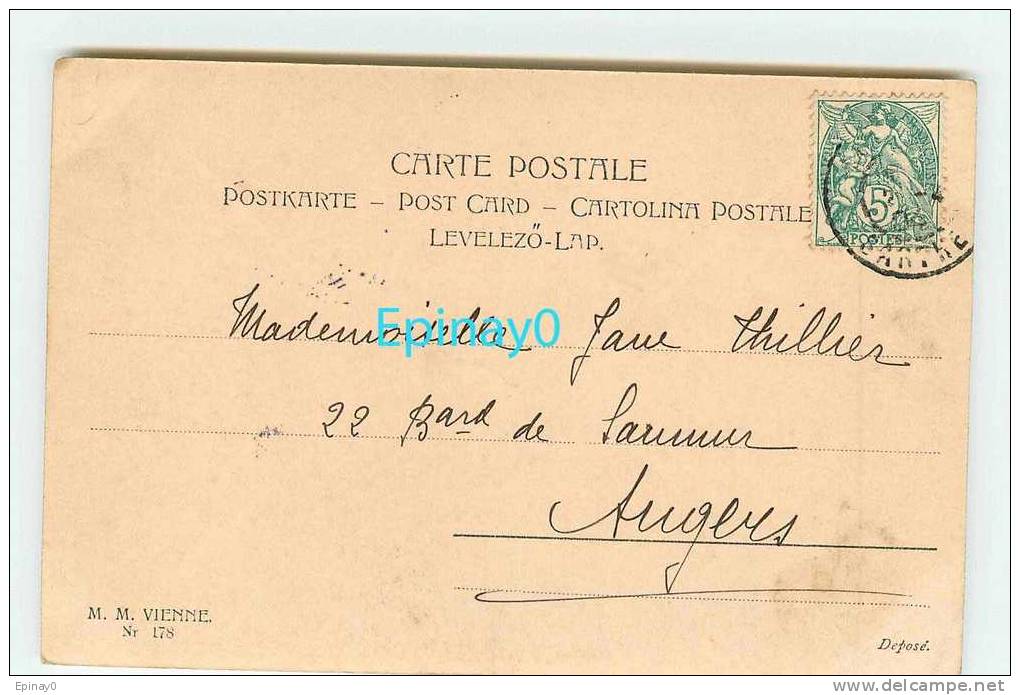 CARTE POSTALE
POSTKARTE – POST CARD – CARTOLINA POSTALE
LEVELEZŐ-LAP.
5
POSTES
SARTHE
Mademoiselle Jane Thillier
Epinay0
22 Bard de Saumur
Angers
M. M. VIENNE.
Nr 178
Deposé.
Epinay0
www.delcampe.net